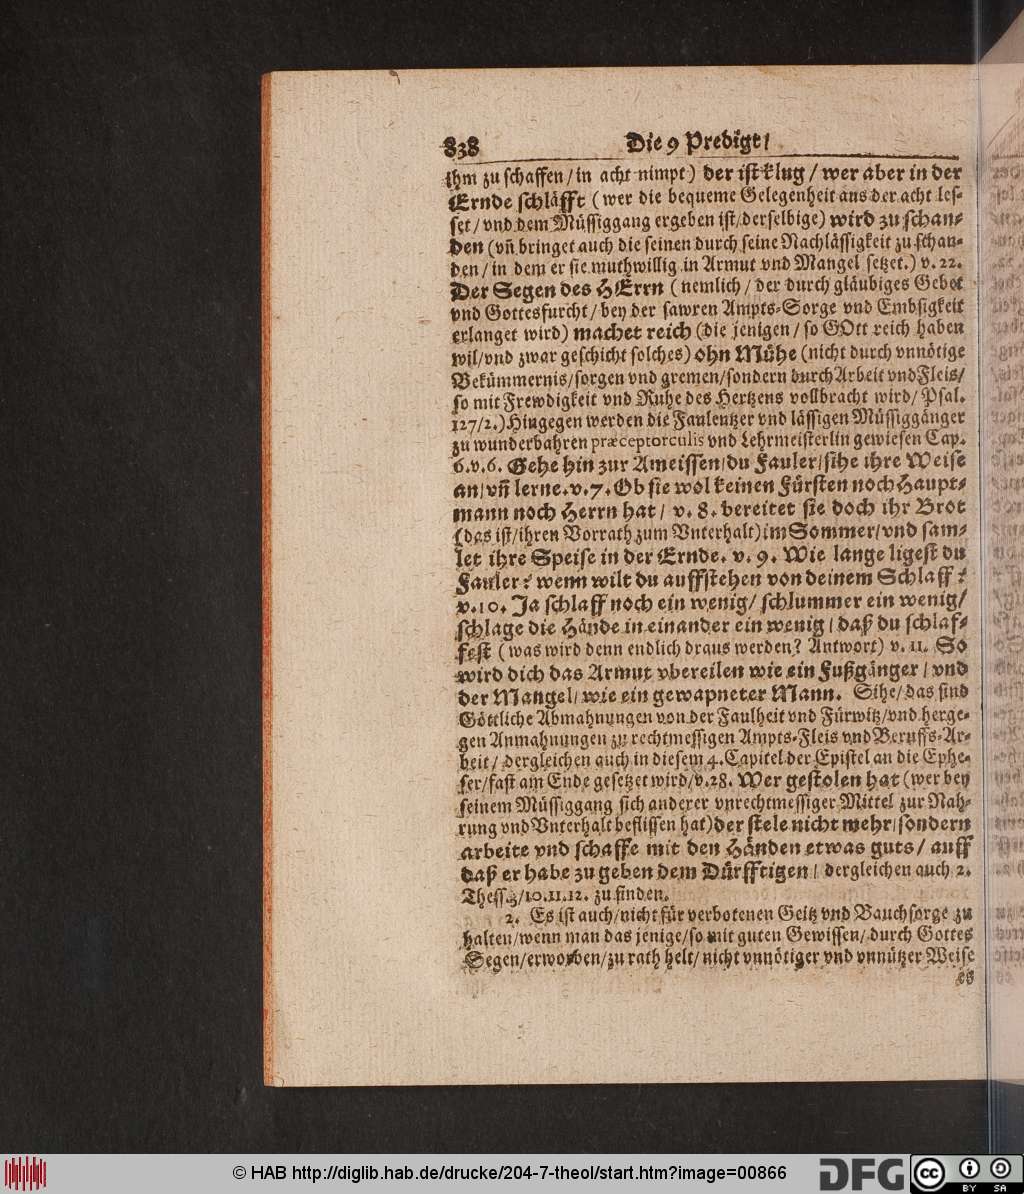 838 Die 9 Predigt/
ihm zu schaffen/in acht nimpt) der ist klug/ wer aber in der
Ernde schläfft (wer die bequeme Gelegenheit aus der acht les-
set/vnd dem Müssiggang ergeben ist/derselbige) wird zu schan-
den (vñ bringet auch die seinen durch seine Nachlässigkeit zu schan-
den/in dem er sie muthwillig in Armut vnd Mangel setzet.) v. 22.
Der Segen des HErrn (nemlich/ der durch gläubiges Gebet
vnd Gottesfurcht/bey der sawren Ampts-Sorge vnd Embsigkeit
erlanget wird) machet reich (die jenigen/so GOtt reich haben
wil/vnd zwar geschicht solches) ohn Mühe (nicht durch vnnötige
Bekümmernis/sorgen vnd gremen/sondern durch Arbeit vnd Fleis/
so mit Frewdigkeit vnd Ruhe des Hertzens vollbracht wird/ Psal.
127/2.) Hingegen werden die Faulentzer vnd lässigen Müssiggänger
zu wunderbahren præceptorculis vnd Lehrmeisterlin gewiesen Cap.
6.v.6. Gehe hin zur Ameissen/du Fauler/sihe ihre Weise
an/vñ lerne.v.7. Ob sie wol keinen Fürsten noch Haupt-
mann noch Herrn hat/ v. 8. bereitet sie doch ihr Brot
(das ist/ihren Vorrath zum Vnterhalt) im Sommer/vnd sam-
let ihre Speise in der Ernde. v. 9. Wie lange ligest du
Fauler? wenn wilt du auffstehen von deinem Schlaff?
v.10. Ja schlaff noch ein wenig/ schlummer ein wenig/
schlage die Hände in einander ein wenig/ daß du schlaf-
fest (was wird denn endlich draus werden? Antwort) v. 11. So
wird dich das Armut vbereilen wie ein Fußgänger/vnd
der Mangel/wie ein gewapneter Mann. Sihe/das sind
Göttliche Abmahnungen von der Faulheit vnd Fürwitz/vnd herge-
gen Anmahnungen zu rechtmessigen Ampts-Fleis vnd Beruffs-Ar-
beit/ dergleichen auch in diesem 4.Capitel der Epistel an die Ephe-
ser/fast am Ende gesetzet wird/v.28. Wer gestolen hat (wer bey
seinem Müssiggang sich anderer vnrechtmessiger Mittel zur Nah-
rung vnd Vnterhalt beflissen hat) der stele nicht mehr/sondern
arbeite vnd schaffe mit den Händen etwas guts/ auff
daß er habe zu geben dem Dürfftigen/ dergleichen auch 2.
Thess.3/10.11.12. zu finden.
2. Es ist auch/nicht für verbotenen Geitz vnd Bauchsorge zu
halten/wenn man das jenige/so mit guten Gewissen/durch Gottes
Segen/erworben/zu rath helt/nicht vnnötiger vnd vnnützer Weise
es
© HAB http://diglib.hab.de/drucke/204-7-theol/start.htm?image=00866
DFG
cc BY SA